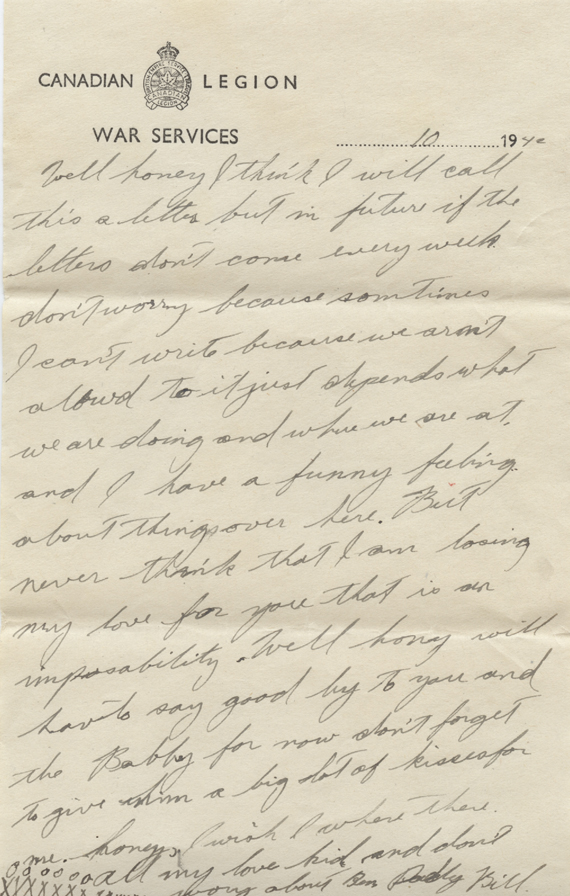 CANADIAN LEGION
WAR SERVICES
10 19 40
Well honey I think I will call
this a letter but in future if the
letters don't come every week
don't worry because somtimes
I can't write because we aran't
allowd to it just depends what
we are doing and where we are at.
and I have a funny feeling
about things over here. But
never think that I am losing
my love for you that is an
imposability. Well hony will
have to say good by to you and
the Babby for now don't forget
to give him a big lot of kisses for
me. honey I wish I where there.
all my love kid and don't
worry about Ben Bill
oooooooo
XXXXXXX